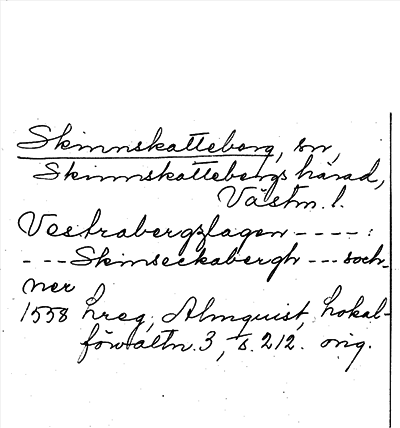 Skinnskatteberg, sn,
Skinnskattebergs härad,
Västm. l.
Vestrabergzlagen ---- :
--- Skinseckabergh --- soch-
ner
1558 hreg, Almquist, Lokal-
förvaltn. 3, s. 212. orig.